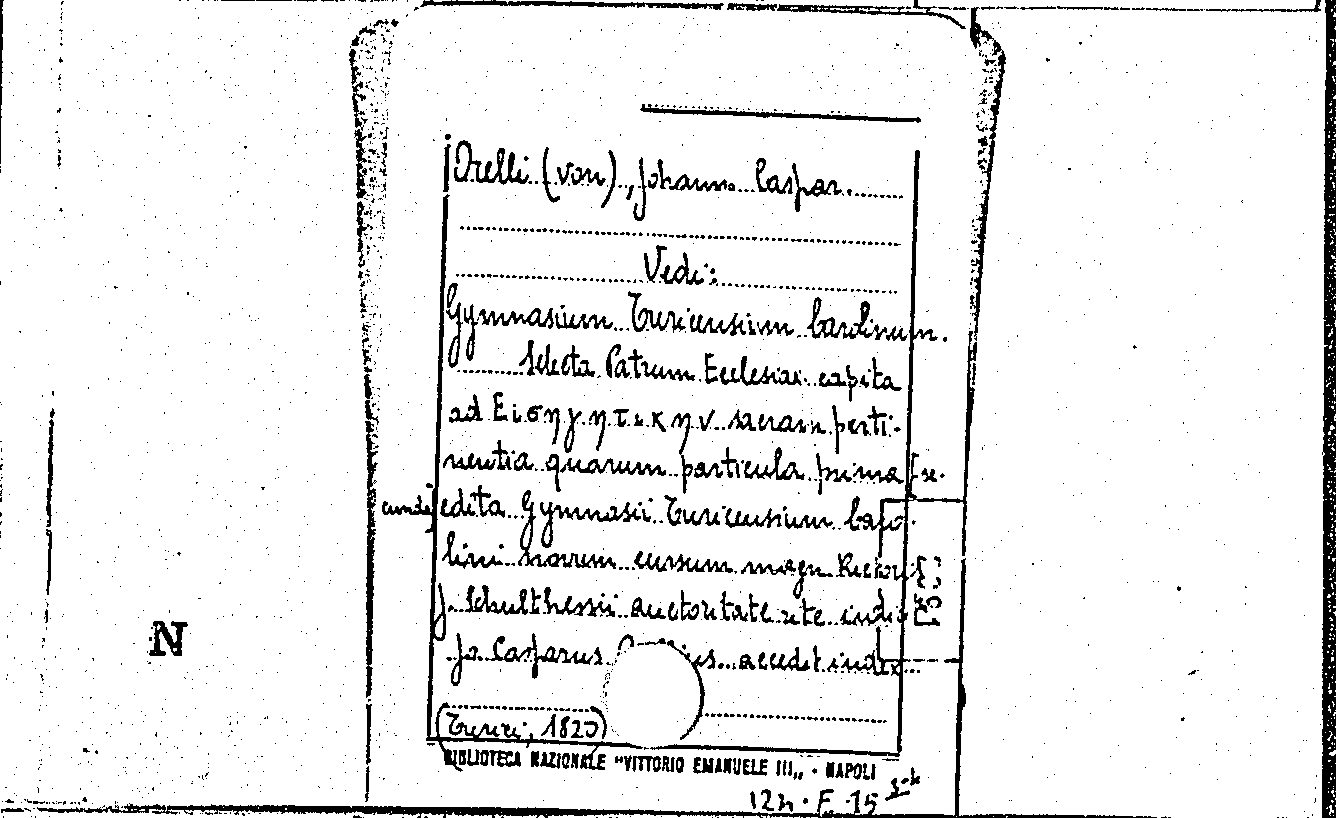 Orelli (von), Johann Caspar.
Vedi:
Gymnasium Turicensium Carolinum.
Selecta Patrum Ecclesiae capita
ad Εισηγητικην sacram perti-
nentia quarum particula prima [se-
cunda] edita Gymnasii Turicensium Caro-
lini novum cursum magn Rector
J. Schulthessii auctoritate rite
Jo. Casparus accedit index
(Turici, 182
BIBLIOTECA NAZIONALE "VITTORIO EMANUELE III„ - NAPOLI
N